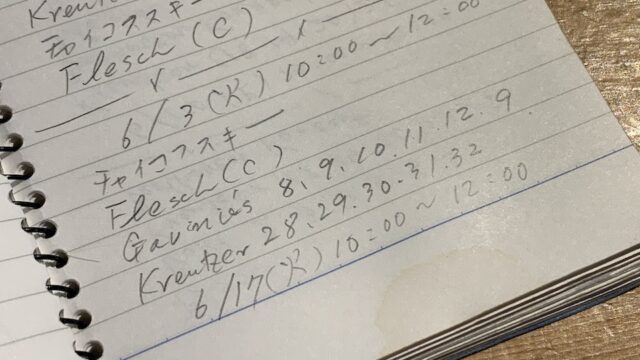 Kreutzer
チャイコフスキー
Flesch (C)
6/3 (火) 10:00〜12:00
チャイコフスキー
Flesch (C)
Gaviniés 8、9、10.11.12.9
Kreutzer 28、29.30.31.32
6/17(火) 10:00〜12:00